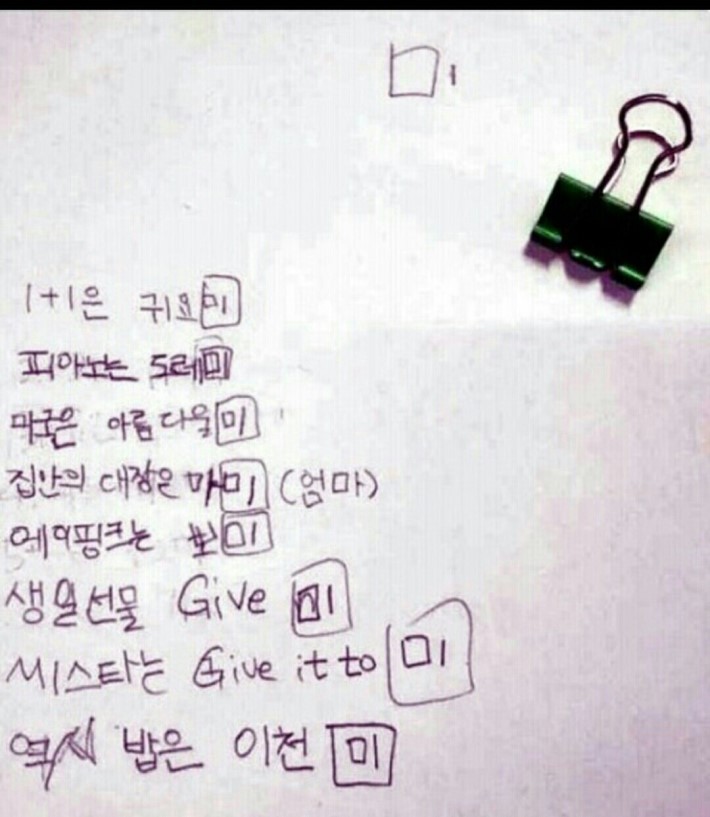 미
1+1은 귀요미
피아노는 도레미
미국은 아름다울미
집안의 대장은 마미 (엄마)
에이핑크는 보미
생일선물 Give 미
씨스타는 Give it to 미
역시 밥은 이천 미